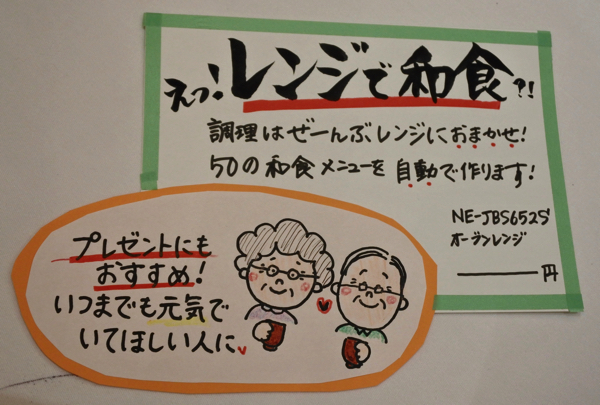 えっ!レンジで和食?!
調理はぜーんぶレンジにおまかせ!
50の和食メニューを自動で作ります!
NE-JBS652S
オーブンレンジ
円
プレゼントにも
おすすめ!
いつまでも元気で
いてほしい人に